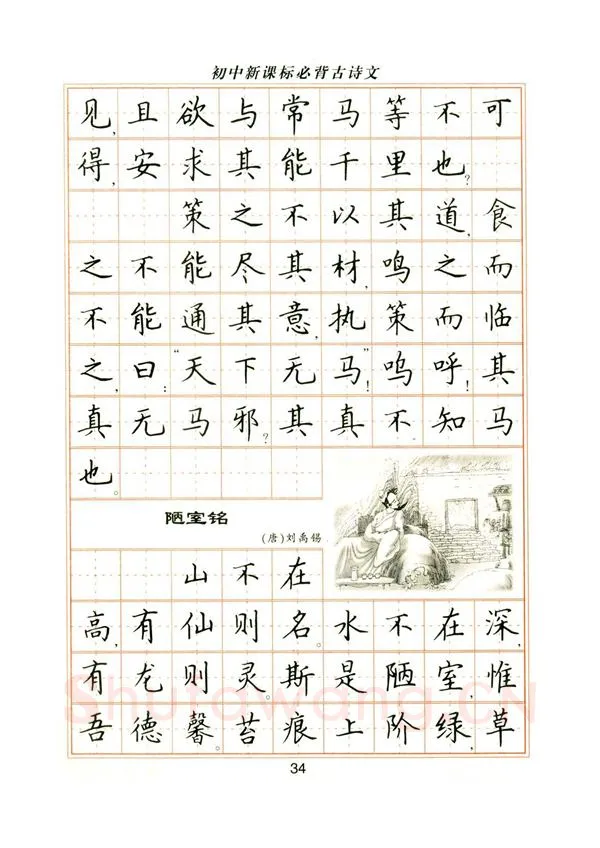 初中新课标必背古诗文
见,且欲与常马等不可
得,安求其能千里也?
策之不以其道,食
之不能尽其材,鸣之而
不能通其意,执策而临
之,曰:“天下无马”!呜呼!其
真无马邪?其真不知马
也。
陋室铭
(唐)刘禹锡
山不在
高,有仙则名。水不在深,
有龙则灵。斯是陋室,惟
吾德馨。苔痕上阶绿,草
Shufawang.CN
34